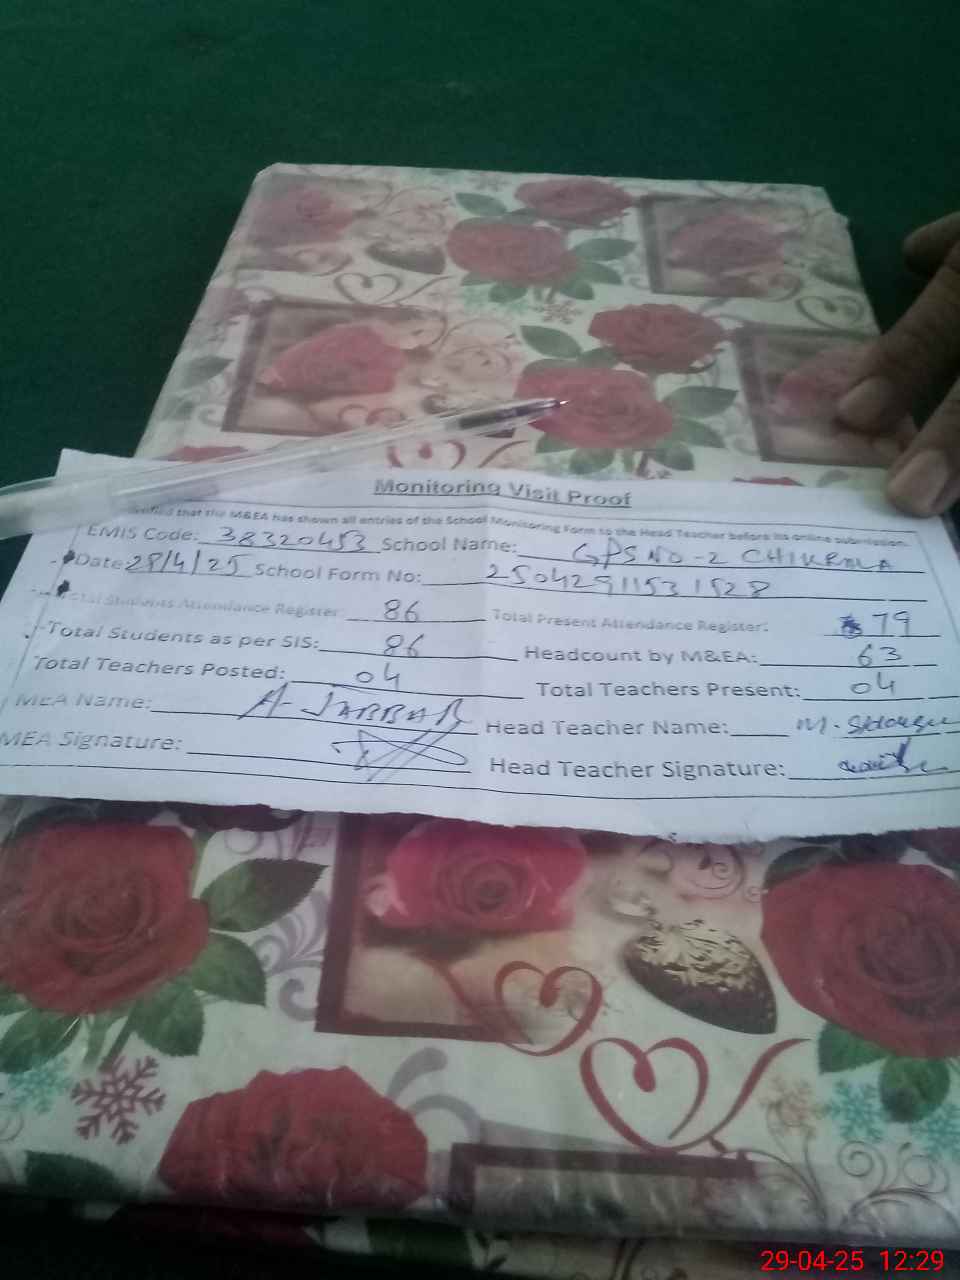 Monitoring Visit Proof
that the M&EA has shown all entries of the School Monitoring Form to the Head Teacher before its online submission.
EMIS Code: 38320453 School Name: GPS NO-2 CHIKRALA
Date: 28/4/25 School Form No: 25042911531528
Total Students Attendance Register: 86 Total Present Attendance Register: 79
Total Students as per SIS: 86 Headcount by M&EA: 63
Total Teachers Posted: 04 Total Teachers Present: 04
MEA Name: A-JABBAR Head Teacher Name: M.
MEA Signature: Head Teacher Signature:
29-04-25 12:29